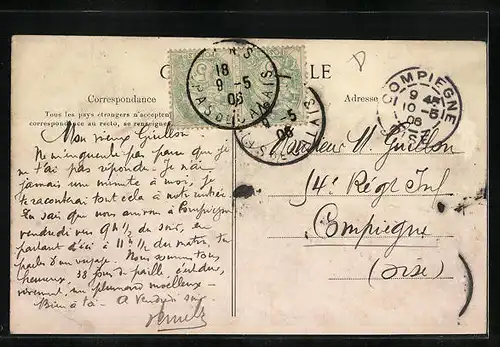 C LE
Correspondance
Adresse
Tous les pays étrangers n'acceptent
correspondance au recto, se renseigner
18
9 - 5
06
PAS DE CALAIS
9 - 5
06
COMPIEGNE
9
10 - 5
06
Mon vieux Guillon
Ne m'en pas parce que je
ne t'ai pas répondu. Je n'ai
jamais une minute à moi, je
te raconterai tout cela à notre
Tu sais que nous arrivons à Compiègne
vendredi vers 9h ½ du soir, en
partant d'ici à 11h ½ du matin, tu
parles d'un voyage. Nous sommes tous
heureux, 38 jours de paille, c'est dur,
vivement, un plumard moelleux —
Bien à toi — A Vendredi soir
Monsieur M. Guillon
54e Régt Inf
Compiègne
(Oise)